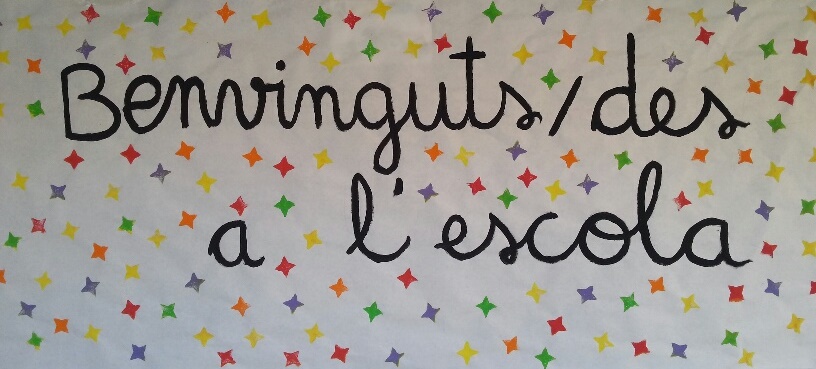 Benvinguts/des
a l'escola